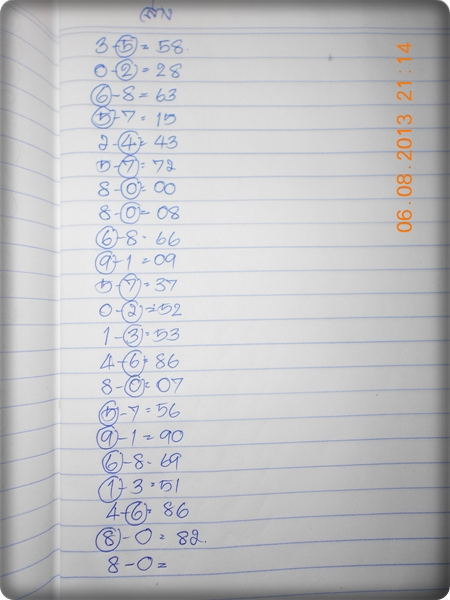 ล่าง
3-5 = 58
0-2 = 28
6-8 = 63
5-7 = 15
2-4 = 43
5-7 = 72
8-0 = 00
8-0 = 08
6-8 - 66
9-1 = 09
5-7 = 37
0-2 = 52
1-3 = 53
4-6 = 86
8-0 = 07
5-7 = 56
9-1 = 90
6-8 - 69
1-3 = 51
4-6 = 86
8-0 = 82.
8-0 =
06.08.2013 21:14